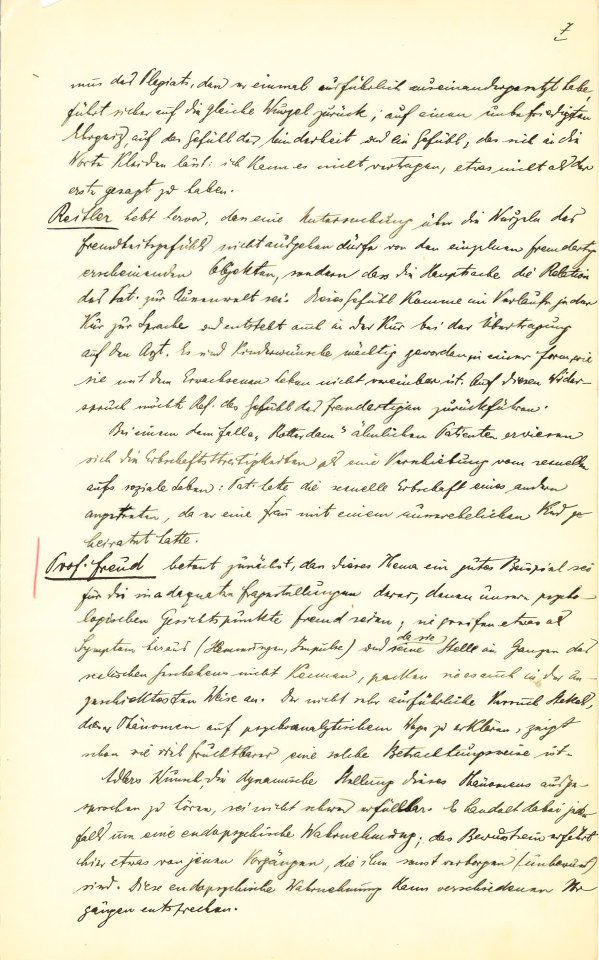 7
mus des Plagiats, den er einmal ausführlich auseinandergesetzt habe,
führt sicher auf die gleiche Wurzel zurück; auf einen unbefriedigten
Ehrgeiz, auf das Gefühl der Minderheit und ein Gefühl, das sich in die
Worte kleiden lässt: ich kann es nicht vertragen, etwas nicht als der
erste gesagt zu haben.
Reitler hebt hervor, dass eine Untersuchung über die Wurzeln des
Fremdheitsgefühls nicht ausgehen dürfe von den einzelnen fremdartig
erscheinenden Objekten, sondern dass die Hauptsache die Relation
des Pat. zur Aussenwelt sei. Dieses Gefühl komme im Verlaufe jeder
Kur zur Sprache und entsteht auch in der Kur bei der Übertragung
auf den Arzt. Es sind Kinderwünsche mächtig geworden in einer Form, wie
sie mit dem Erwachsenen Leben nicht vereinbar ist. Auf diesen Wider-
spruch möchte Ref. das Gefühl des Fremdartigen zurückführen.
Bei einem dem Falle „Rotterdam" ähnlichen Patienten erwiesen
sich die Erbschaftsstreitigkeiten als eine Verschiebung vom sexuellen
aufs soziale Leben: Pat. hatte die sexuelle Erbschaft eines andern
angetreten, da er eine Frau mit einem unehelichen Kind ge-
heiratet hatte.
Prof. Freud betont zunächst, dass dieses Thema ein gutes Beispiel sei
für die inadaequaten Fragestellungen derer, denen unsere psycho-
logischen Gesichtspunkte fremd seien; sie greifen etwas als
Symptom heraus (Hemmungen, Impulse) und da sie seine Stelle im Ganzen des
seelischen Geschehens nicht kennen, packen sie es auch in der un-
geschicktesten Weise an. Der nicht sehr ausführliche Versuch Stekels,
dieses Phänomen auf psychoanalytischem Wege zu erklären, zeigt
schon wie viel fruchtbarer eine solche Betrachtungsweise ist.
Adlers Wunsch, die dynamische Stellung dieses Phänomens ausge-
sprochen zu hören, sei nicht schwer erfüllbar. Es handelt dabei jeden-
falls um eine endopsychische Wahrnehmung; das Bewusstsein erfährt
hier etwas von jenen Vorgängen, die ihm sonst verborgen (unbewusst)
sind. Diese endopsychische Wahrnehmung kann verschiedenen Vor-
gängen entsprechen.